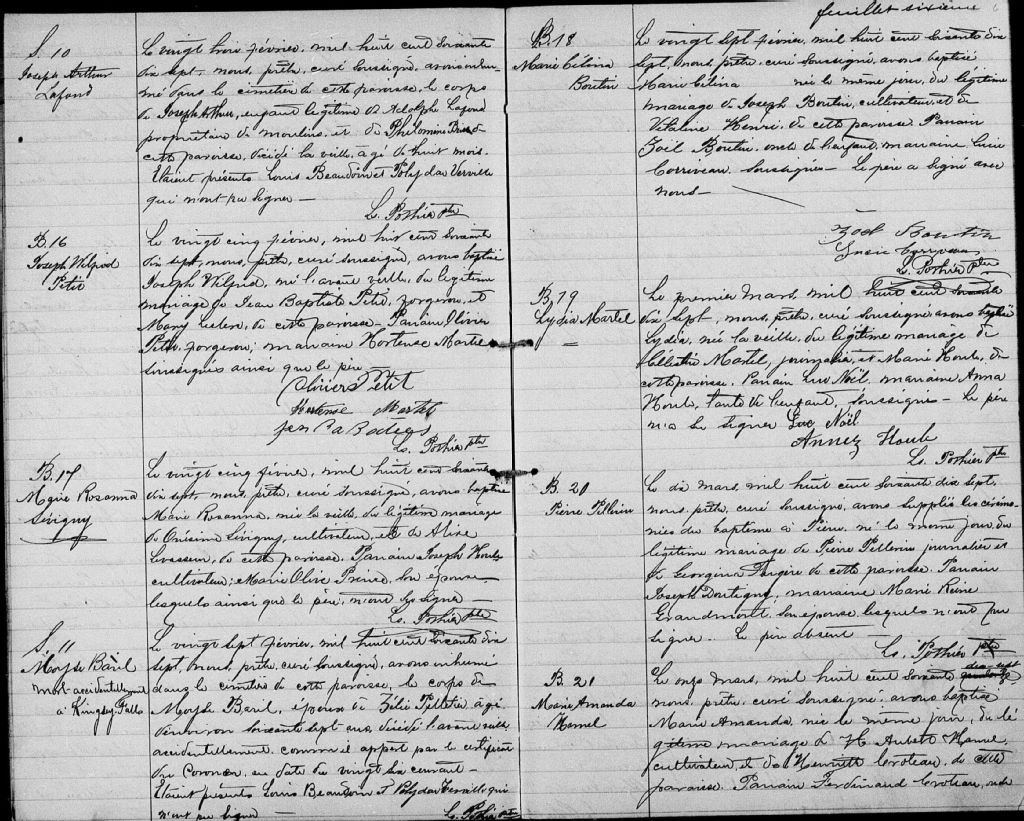 S. 10
Joseph Arthur
Lafond
Le vingt trois février, mil huit cent soixante
dix sept, nous, prêtre, curé soussigné, avons inhu-
mé dans le cimetière de cette paroisse, le corps
de Joseph Arthur, enfant légitime de Adolphe Lafond
propriétaire de moulins, et de Philomène
cette paroisse, décédé la veille, âgé de huit mois.
Etaient présents Louis Beaudoin et Polydor Verville
qui n'ont pu signer —
L. Pothier ptre
B. 16
Joseph Wilfrid
Petit
Le vingt cinq février, mil huit cent soixante
dix sept, nous, prêtre, curé soussigné, avons baptisé
Joseph Wilfrid, né l'avant veille, du légitime
mariage de Jean Baptiste Petit, forgeron, et
Mary de cette paroisse. Parrain, Olivier
Petit, forgeron; marraine Hortense Martel
soussignés ainsi que le père
Oliviers Petit
Hortense Martel
L. Pothier ptre
B. 17
Marie Rosanna
Sévigny
Le vingt cinq février, mil huit cent soixante
dix sept, nous, prêtre, curé soussigné, avons baptisé
Marie Rosanna, née la veille, du légitime mariage
de Onésime Sévigny, cultivateur, et de Alixe
Levasseur, de cette paroisse. Parrain Joseph Houle
cultivateur; Marie Olive Prince, son épouse
lesquels ainsi que le père, n'ont su signer —
L. Pothier ptre
S. 11
Moyse Baril
mort accidentellement
à Kingsey Falls
Le vingt sept février, mil huit cent soixante dix
sept, nous, prêtre, curé soussigné, avons inhumé
dans le cimetière de cette paroisse, le corps de
Moyse Baril, époux de Zélie Pelletier âgé
d'environ soixante sept ans, décédé l'avant veille
accidentellement comme il appert par le certificat
du Coroner, en date du vingt six courant —
Etaient présents Louis Beaudoin et Polydor Verville, qui
n'ont pu signer —
L. Pothier ptre
feuillet sixième
B. 18
Marie Célina
Boutin
Le vingt sept février, mil huit cent soixante dix
sept, nous, prêtre, curé soussigné, avons baptisé
Marie Célina née le même jour, du légitime
mariage de Joseph Boutin, cultivateur, et de
Vitaline Henri, de cette paroisse. Parrain
Zoël Boutin, oncle de l'enfant, marraine
Corriveau, soussignés — Le père a signé avec
nous —
Zoël Boutin
L. Pothier ptre
B. 19
Lydia Martel
Le premier mars, mil huit cent soixante
dix sept, nous, prêtre, curé soussigné, avons baptisé
Lydia, née la veille, du légitime mariage de
Martel, journalier, et Marie Houle, de
cette paroisse. Parrain Luc Noël, marraine Anna
Houle, tante de l'enfant, soussignés — Le père
n'a su signer Luc Noël
Annez Houle
L. Pothier ptre
B. 20
Pierre Pellerin
Le dix mars, mil huit cent soixante dix sept,
nous, prêtre, curé soussigné, avons supplée les cérémo-
nies du baptême à Pierre, né le même jour, du
légitime mariage de Pierre Pellerin journalier et
de Georgina de cette paroisse. Parrain
Joseph marraine Marie Reine
Grandmont, son épouse, lesquels n'ont pu
signer. Le père absent —
L. Pothier ptre
B. 21
Marie Amanda
Hamel
Le onze mars, mil huit cent soixante dix-sept
nous, prêtre, curé soussigné, avons baptisé
Marie Amanda, née le même jour, du lé-
gitime mariage de H. Aubert Hamel
cultivateur et de Henriette Croteau, de cette
paroisse. Parrain Ferdinand Croteau, oncle